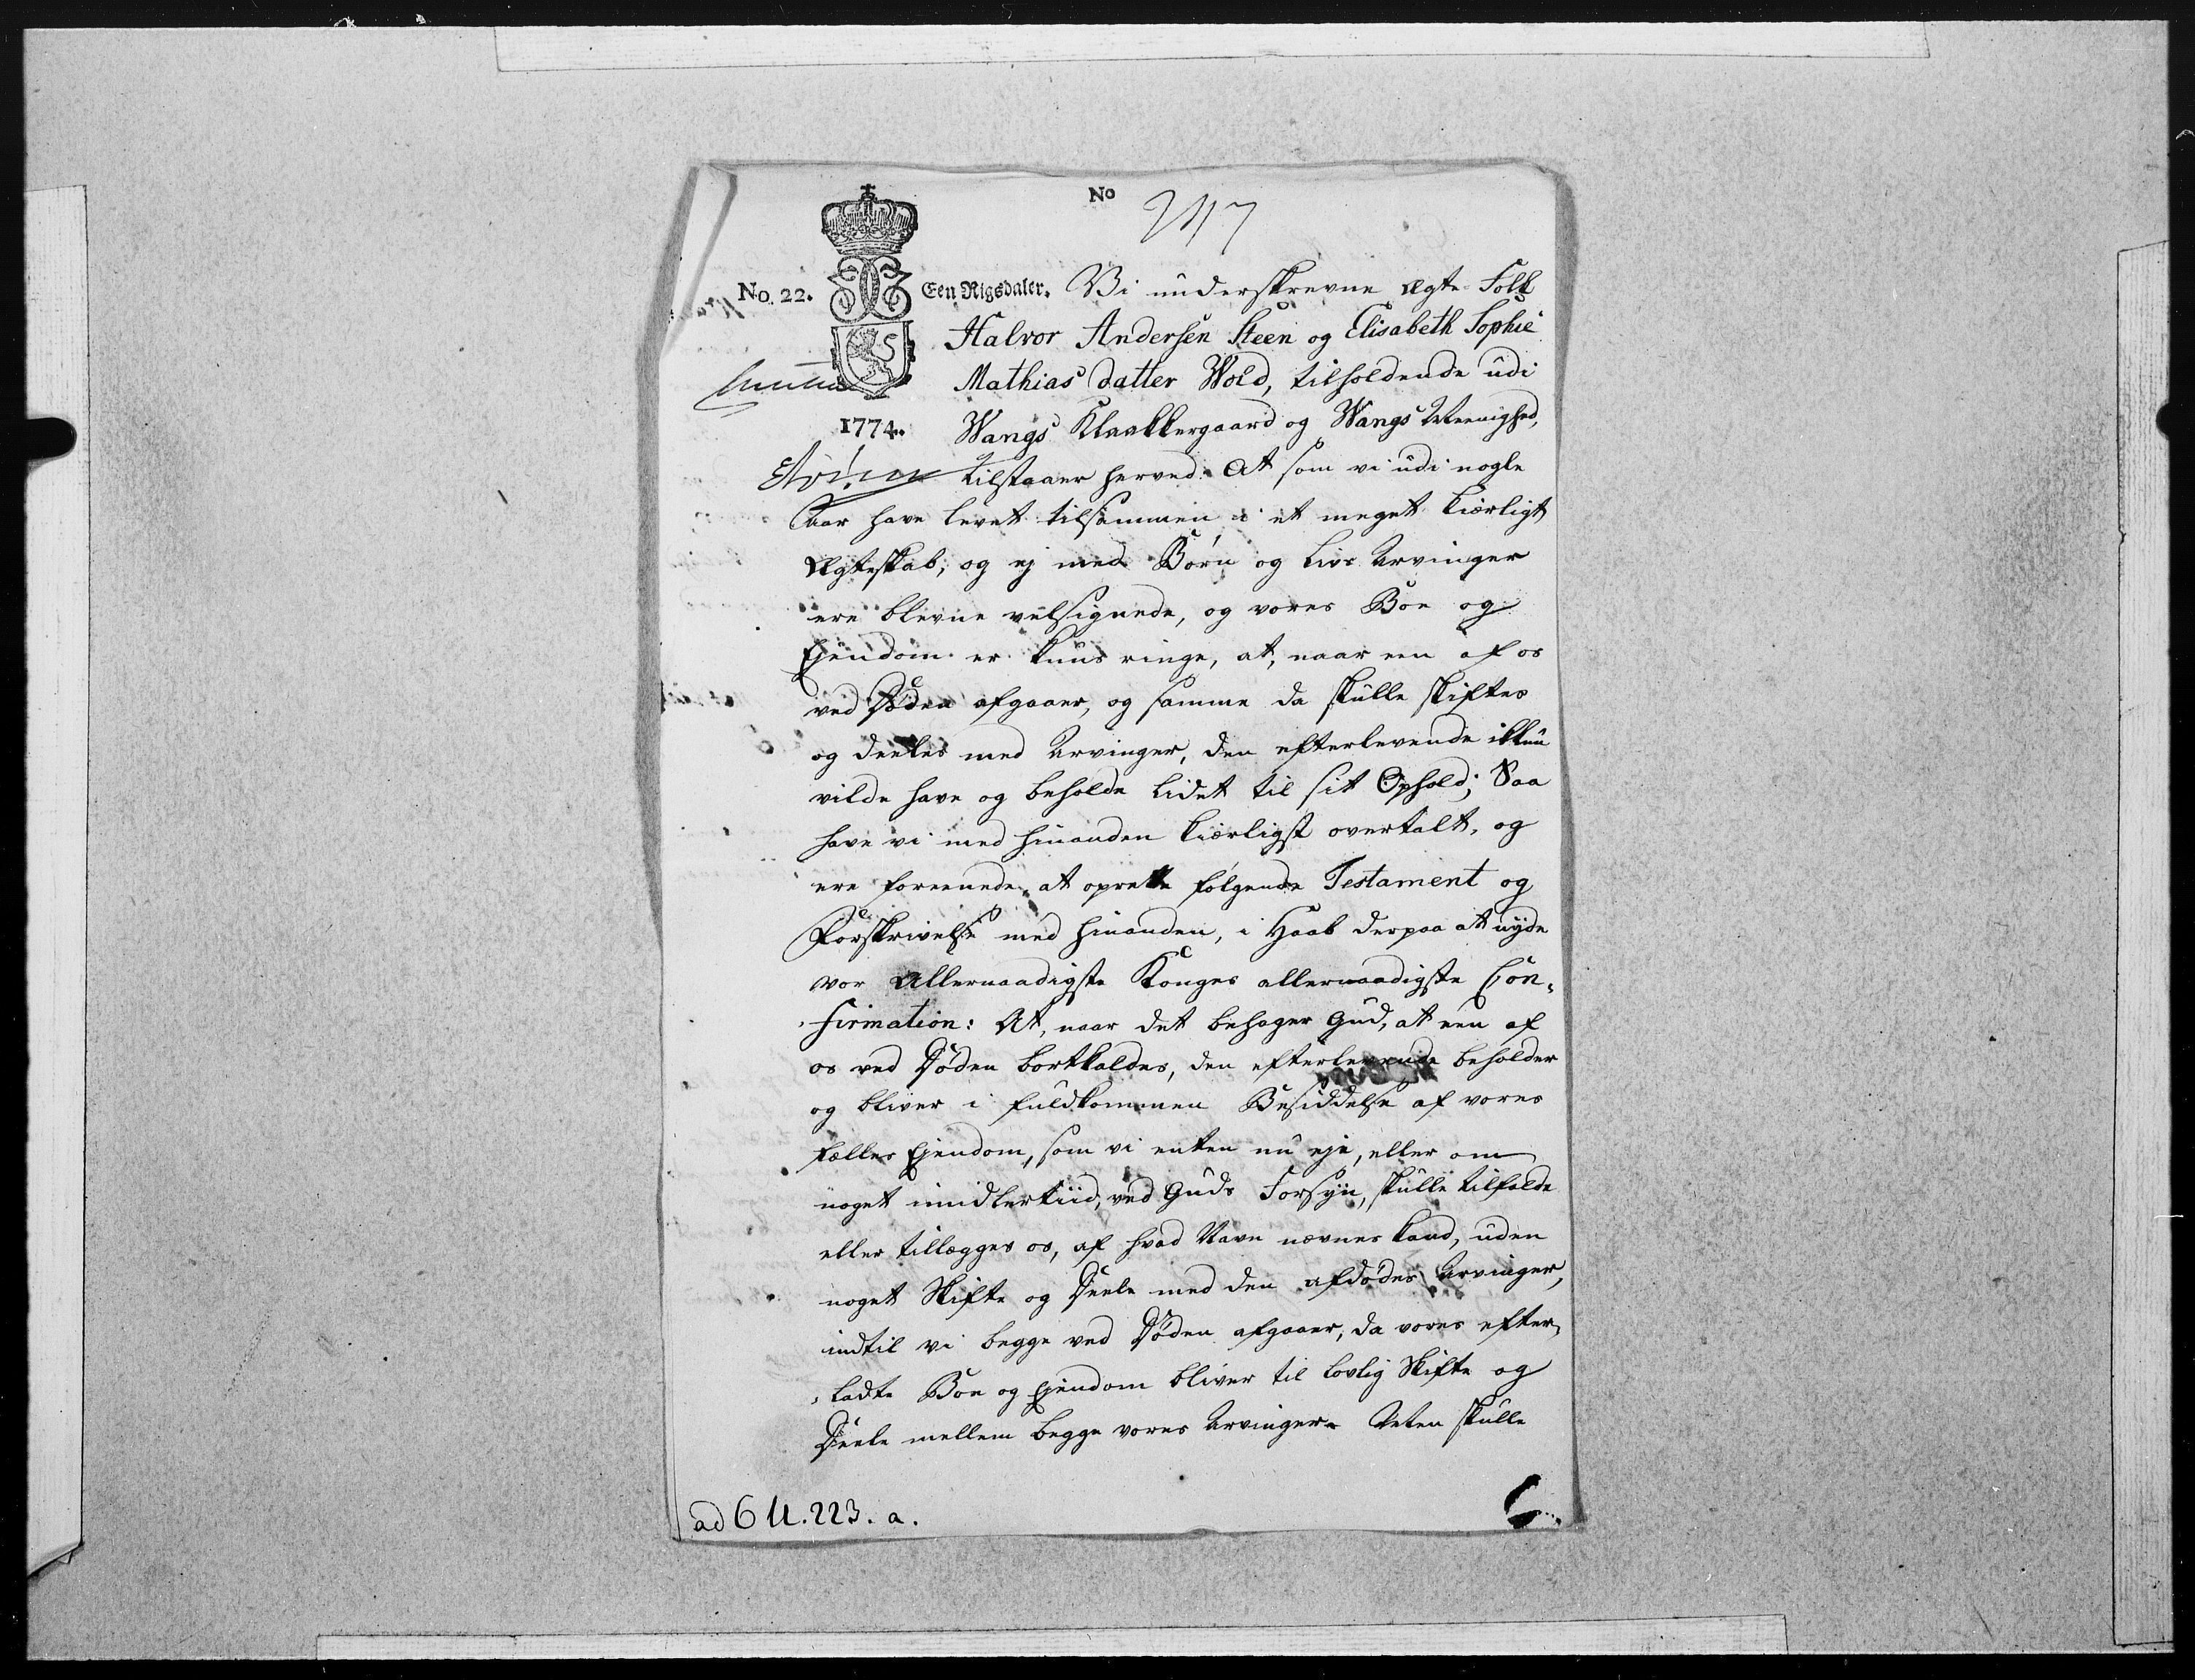 No
2117
No. 22. Een Rigsdaler. Vi underskrevne ægte Folk
Halvor Andersen Steen og Elisabeth Sophie
Mathias datter Wold, tilholdende udi
1774. Wangs Klaakkergaard og Wangs Meenighed,
tilstaaer herved: At som vi udi nogle
Aar have levet tilsammen i et meget kiærligt
Ægteskab, og ej med Børn og Livs Arvinger
ere blevne velsignede, og vores Boe og
Ejendom er kuns ringe, at, naar een af os
ved Døden afgaaer, og samme da skulle skiftes
og deeles med Arvinger, den efterlevende ikkun
vilde have og beholde lidet til sit Ophold; Saa
have vi med hinanden kiærligst overtalt, og
ere foreenede, at oprette følgende Testament og
Forskrivelse med hinanden, i Haab derpaa at nyde
vor Allernaadigste Konges allernaadigste Con-
firmation: At, naar det behager Gud, at een af
os ved Døden bortkaldes, den efterlevende beholder
og bliver i fuldkommen Besiddelse af vores
fælles Ejendom, som vi enten nu eje, eller om
noget imidlertiid, ved Guds Forsyn, skulle tilfalde
eller tillægges os, af hvad Navn nævnes kand, uden
noget Skifte og Deele med den afdødes Arvinger,
indtil vi begge ved Døden afgaaer, da vores efter-
ladte Boe og Ejendom bliver til lovlig Skifte og
Deele mellem begge vores Arvinger. Men skulle
ad 6 U. 223. a.